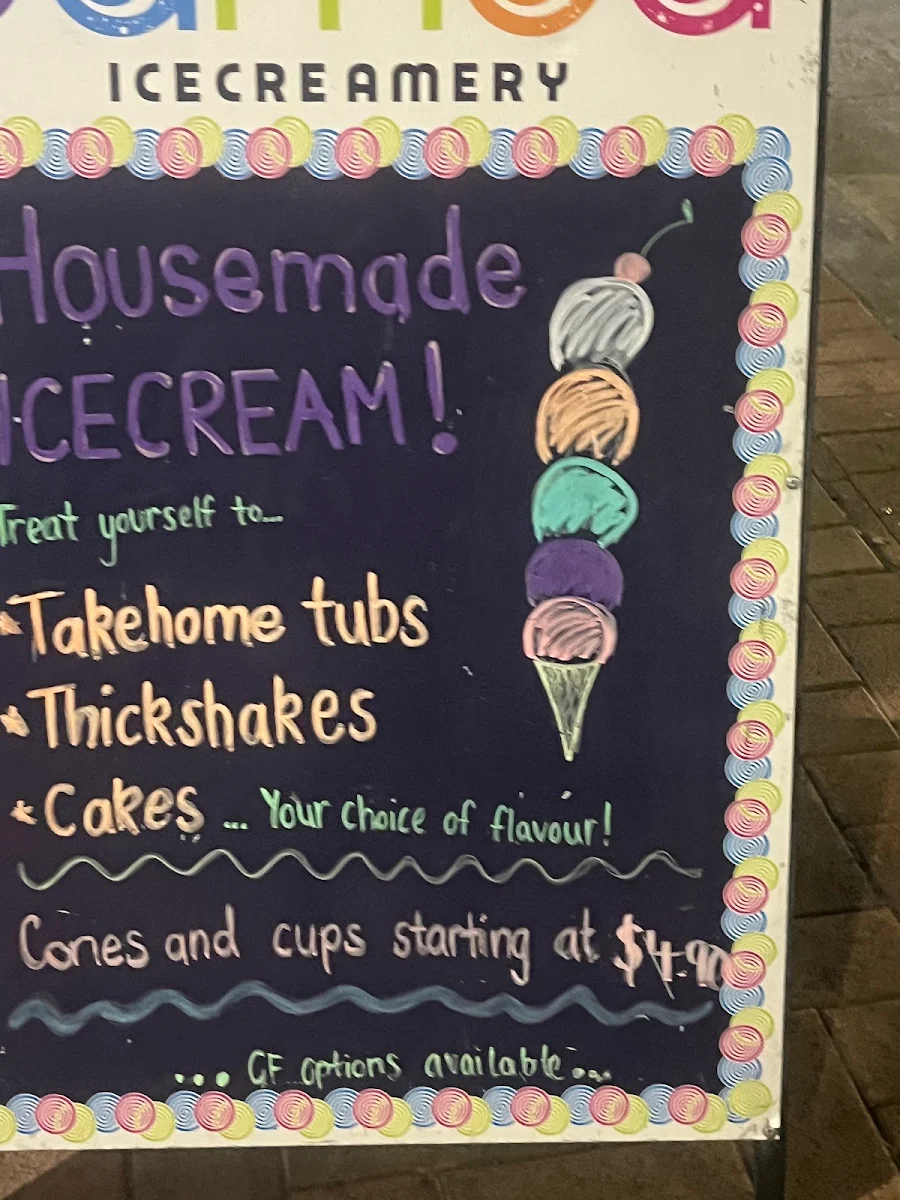 ICECREAMERY
Housemade
ICECREAM!
Treat yourself to...
*Takehome tubs
*Thickshakes
*Cakes ... Your choice of flavour!
Cones and cups starting at $4.90
... GF options available...